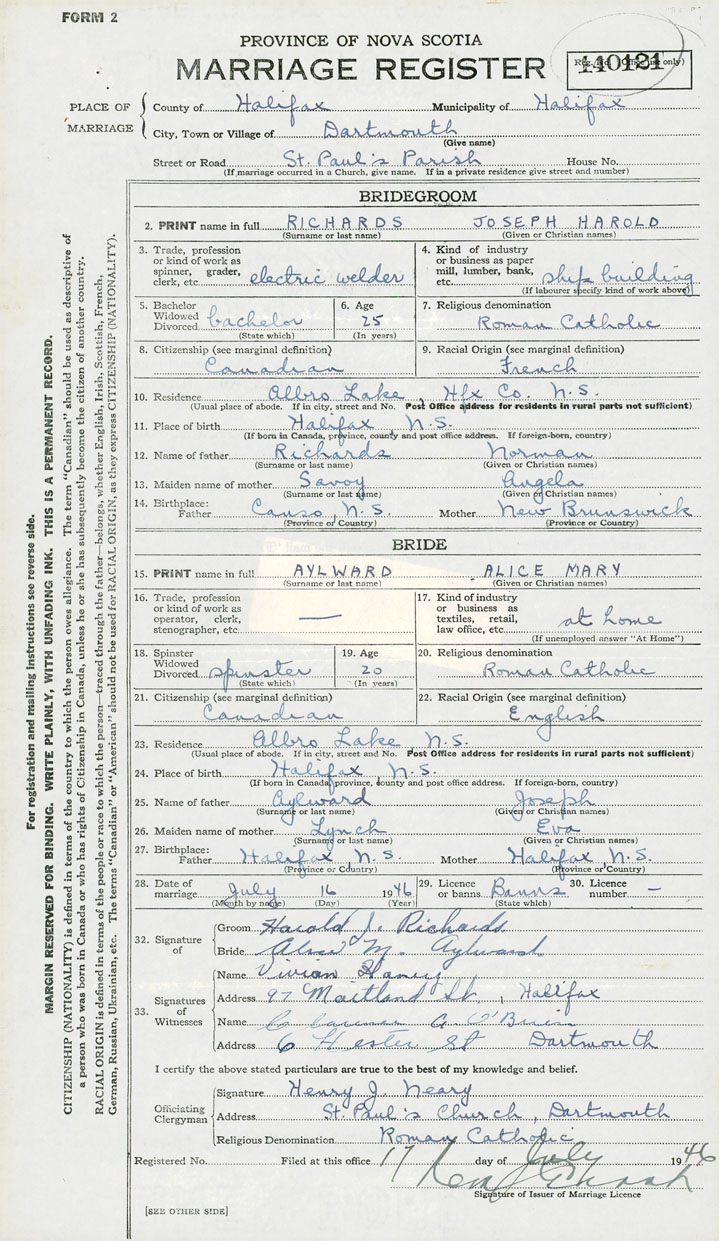 FORM 2
PROVINCE OF NOVA SCOTIA
MARRIAGE REGISTER
Reg. No. (Office use only)
140121
PLACE OF MARRIAGE
County of Halifax Municipality of Halifax
City, Town or Village of Dartmouth
(Give name)
Street or Road St. Paul's Parish House No.
(If marriage occurred in a Church, give name. If in a private residence give street and number)
BRIDEGROOM
2. PRINT name in full RICHARDS JOSEPH HAROLD
(Surname or last name) (Given or Christian names)
3. Trade, profession or kind of work as spinner, grader, clerk, etc. electric welder
4. Kind of industry or business as paper mill, lumber, bank, etc. ship building
(If labourer specify kind of work above)
5. Bachelor Widowed Divorced bachelor
(State which)
6. Age 25
(In years)
7. Religious denomination
Roman Catholic
8. Citizenship (see marginal definition)
Canadian
9. Racial Origin (see marginal definition)
French
10. Residence Albro Lake, Hfx Co. N.S.
(Usual place of abode. If in city, street and No. Post Office address for residents in rural parts not sufficient)
11. Place of birth Halifax N.S.
(If born in Canada, province, county and post office address. If foreign-born, country)
12. Name of father Richards Norman
(Surname or last name) (Given or Christian names)
13. Maiden name of mother Savoy Angela
(Surname or last name) (Given or Christian names)
14. Birthplace: Father Canso, N.S. Mother New Brunswick
(Province or Country) (Province or Country)
BRIDE
15. PRINT name in full AYLWARD ALICE MARY
(Surname or last name) (Given or Christian names)
16. Trade, profession or kind of work as operator, clerk, stenographer, etc. —
17. Kind of industry or business as textiles, retail, law office, etc. at home
(If unemployed answer "At Home")
18. Spinster Widowed Divorced spinster
(State which)
19. Age 20
(In years)
20. Religious denomination
Roman Catholic
21. Citizenship (see marginal definition)
Canadian
22. Racial Origin (see marginal definition)
English
23. Residence Albro Lake N.S.
(Usual place of abode. If in city, street and No. Post Office address for residents in rural parts not sufficient)
24. Place of birth Halifax N.S.
(If born in Canada, province, county and post office address. If foreign-born, country)
25. Name of father Aylward Joseph
(Surname or last name) (Given or Christian names)
26. Maiden name of mother Lynch Eva
(Surname or last name) (Given or Christian names)
27. Birthplace: Father Halifax, N.S. Mother Halifax, N.S.
(Province or Country) (Province or Country)
28. Date of marriage July 16 1946
(Month by name) (Day) (Year)
29. Licence or banns Banns
(State which)
30. Licence number —
32. Signature of
Groom Harold J. Richards
Bride Alice M. Aylward
33. Signatures of Witnesses
Name Vivian
Address 97 Maitland St., Halifax
Name A. O'Brien
Address 6 Hester St Dartmouth
I certify the above stated particulars are true to the best of my knowledge and belief.
Officiating Clergyman
Signature Henry J. Neary
Address St. Paul's Church, Dartmouth
Religious Denomination Roman Catholic
Registered No. Filed at this office 17 day of July 1946
Signature of Issuer of Marriage Licence
[SEE OTHER SIDE]
For registration and mailing instructions see reverse side.
MARGIN RESERVED FOR BINDING. WRITE PLAINLY, WITH UNFADING INK. THIS IS A PERMANENT RECORD.
CITIZENSHIP (NATIONALITY) is defined in terms of the country to which the person owes allegiance. The term "Canadian" should be used as descriptive of
a person who was born in Canada or who has rights of Citizenship in Canada, unless he or she has subsequently become the citizen of another country.
RACIAL ORIGIN is defined in terms of the people or race to which the person—traced through the father—belongs, whether English, Irish, Scottish, French,
German, Russian, Ukrainian, etc. The terms "Canadian" or "American" should not be used for RACIAL ORIGIN, as they express CITIZENSHIP (NATIONALITY).